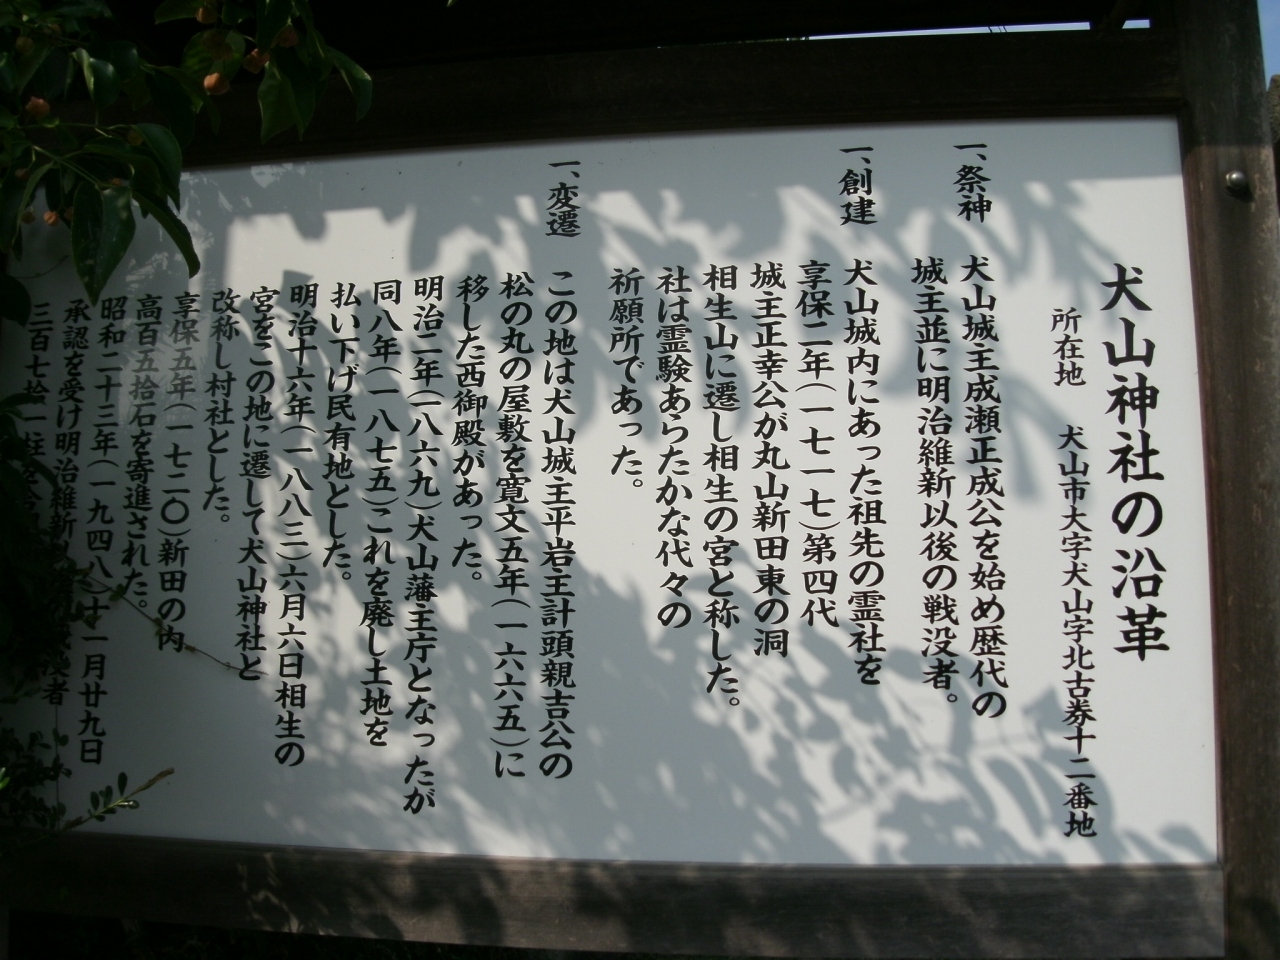 犬山神社の沿革
所在地 犬山市大字犬山字北古券十二番地
一、祭神 犬山城主成瀬正成公を始め歴代の
城主並に明治維新以後の戦没者。
一、創建 犬山城内にあった祖先の霊社を
享保二年(一七一七)第四代
城主正幸公が丸山新田東の洞
相生山に遷し相生の宮と称した。
社は霊験あらたかな代々の
祈願所であった。
一、変遷 この地は犬山城主平岩主計頭親吉公の
松の丸の屋敷を寛文五年(一六六五)に
移した西御殿があった。
明治二年(一八六九)犬山藩主庁となったが
同八年(一八七五)これを廃し土地を
払い下げ民有地とした。
明治十六年(一八八三)六月六日相生の
宮をこの地に遷して犬山神社と
改称し村社とした。
享保五年(一七二〇)新田の内
高百五拾石を寄進された。
昭和二十三年(一九四八)十一月廿九日
承認を受け明治維新以
三百七拾一柱を